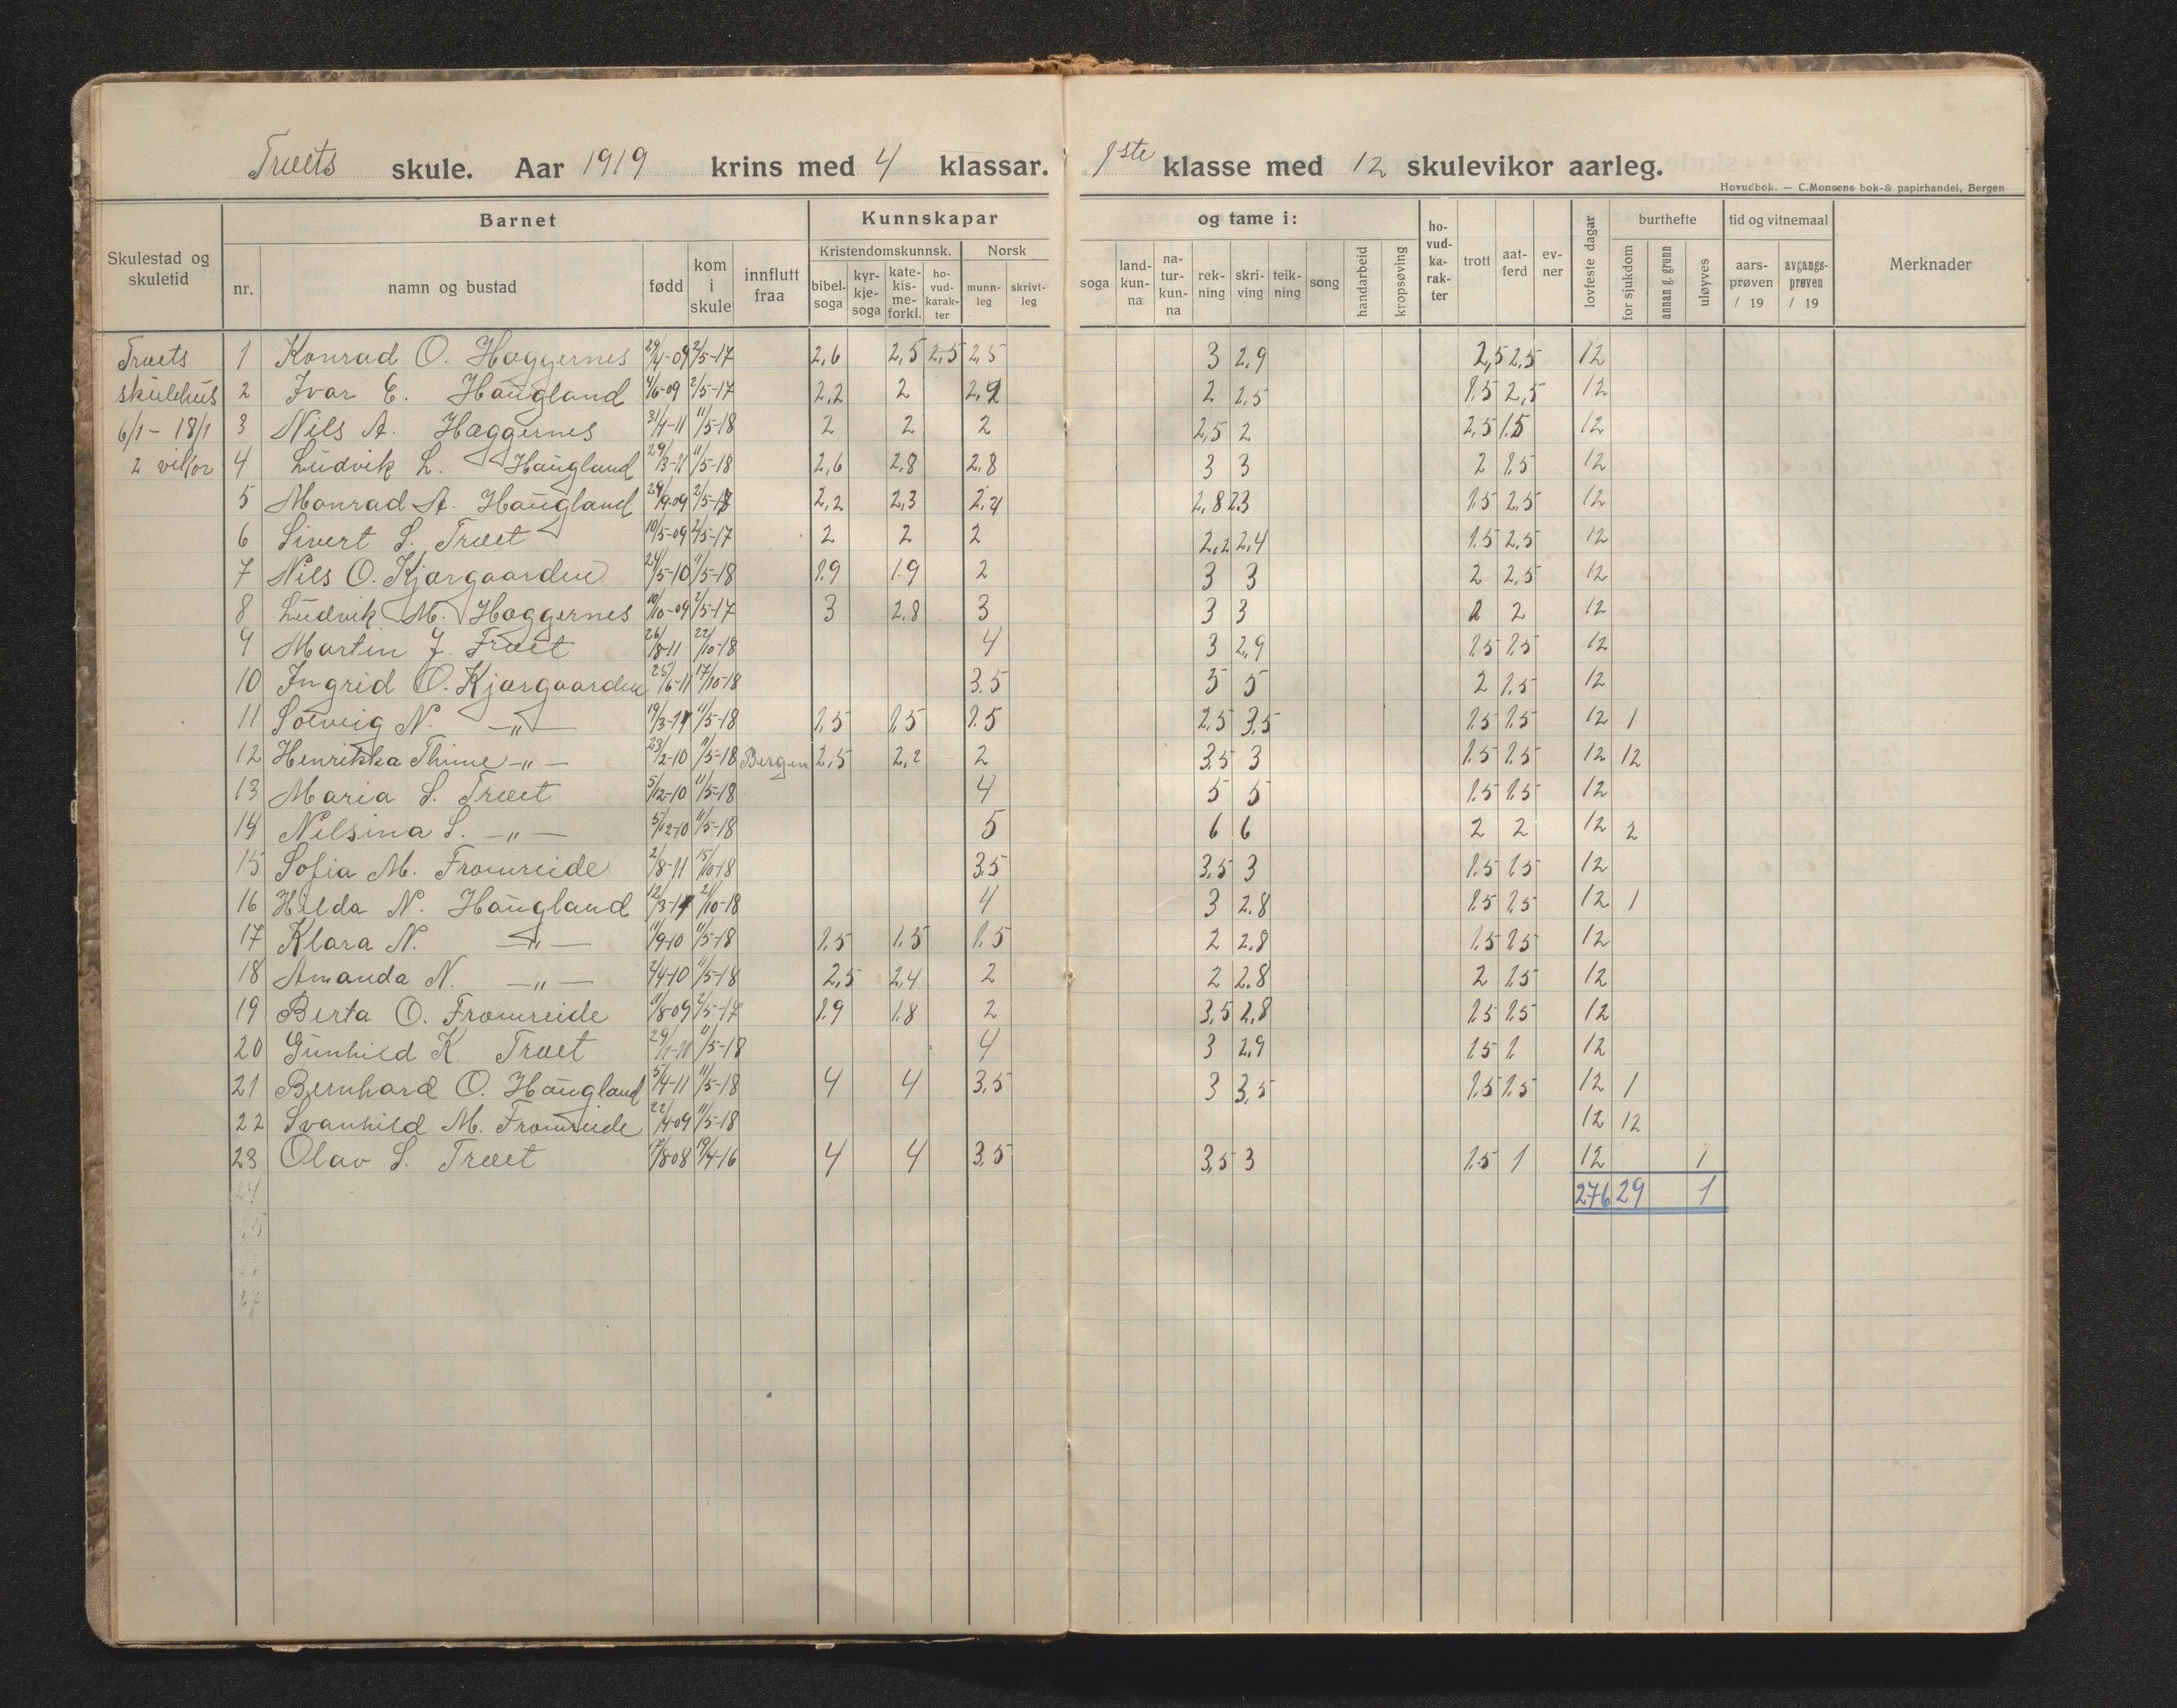 Træets skule. Aar 1919 krins med 4 klassar. 1ste klasse med 12 skulevikor aarleg.
Hovudbok. — C.Monsens bok-& papirhandel, Bergen
Skulestad og skuletid | Barnet | Kunnskapar og tame i: | ho-vud-ka-rak-ter | trott | aat-ferd | ev-ner | lovfeste dagar | burthefte | tid og vitnemaal | Merknader
nr. | namn og bustad | fødd | kom i skule | innflutt fraa | Kristendomskunnsk. | Norsk
bibel-soga | kyr-kje-soga | kate-kis-me-forkl. | ho-vud-karak-ter | munn-leg | skrivt-leg | soga | land-kun-na | na-tur-kun-na | rek-ning | skri-ving | teik-ning | song | handarbeid | kropsøving | for sjukdom | annan g. grunn | uløyves | aars-prøven / 19 | avgangs-prøven / 19
Træets 1 Konrad O. Haggernes 29/4-09 2/5-17 2,6 2,5 2,5 2,5 3 2,9 2,5 2,5 12
skulehus 2 Ivar E. Haugland 4/6-09 2/5-17 2,2 2 2,2 2 2,5 1.5 2,5 12
6/1-18/1 3 Nils A. Haggernes 31/1-11 11/5-18 2 2 2 2,5 2 2,5 1.5 12
2 vikor 4 Ludvik L. Haugland 29/3-11 11/5-18 2,6 2,8 2,8 3 3 2 1.5 12
5 Monrad A. Haugland 29/9-09 2/5-17 2,2 2,3 2,4 2,8 2,3 1.5 2,5 12
6 Sivert S. Træet 10/5-09 2/5-17 2 2 2 2,2 2,4 1.5 2,5 12
7 Nils O. Kjærgaarden 24/5-10 11/5-18 1.9 1.9 2 3 3 2 2,5 12
8 Ludvik M. Haggernes 10/10-09 2/5-17 3 2,8 3 3 3 2 2 12
9 Martin J. Træet 26/8-11 22/10-18 4 3 2,9 1.5 1.5 12
10 Ingrid O. Kjærgaarden 25/6-11 17/10-18 3.5 5 5 2 1.5 12
11 Solveig N. —"— 19/3-11 11/5-18 1,5 1,5 1.5 2.5 3.5 1.5 1.5 12 1
12 Henrikka Thime —"— 23/2-10 11/5-18 Bergen 2,5 2,2 2 3.5 3 1.5 1.5 12 12
13 Maria S. Træet 5/12-10 11/5-18 4 5 5 1.5 1.5 12
14 Nilsina S. —"— 5/12-10 11/5-18 5 6 6 2 2 12 2
15 Sofia M. Fromreide 2/8-11 15/10-18 3.5 3.5 3 1.5 1.5 12
16 Hilda N. Haugland 12/3-11 21/10-18 4 3 2.8 1.5 1.5 12 1
17 Klara N. —"— 11/9-10 11/5-18 1.5 1.5 1.5 2 2.8 1.5 1.5 12
18 Amanda N. —"— 2/4-10 11/5-18 2,5 2,4 2 2 2.8 2 1.5 12
19 Berta O. Fromreide 11/8-09 2/5-17 1.9 1.8 2 3,5 2,8 1.5 1.5 12
20 Gunhild K. Træet 29/1-11 11/5-18 4 3 2,9 1.5 1. 12
21 Bernhard O. Haugland 5/4-11 11/5-18 4 4 3.5 3 3,5 1.5 1.5 12 1
22 Svanhild M. Fromreide 22/4-09 11/5-18 12 12
23 Olav S. Træet 17/8-08 19/4-16 4 4 3.5 3,5 3 1.5 1 12 1
24 276 29 1
25
27